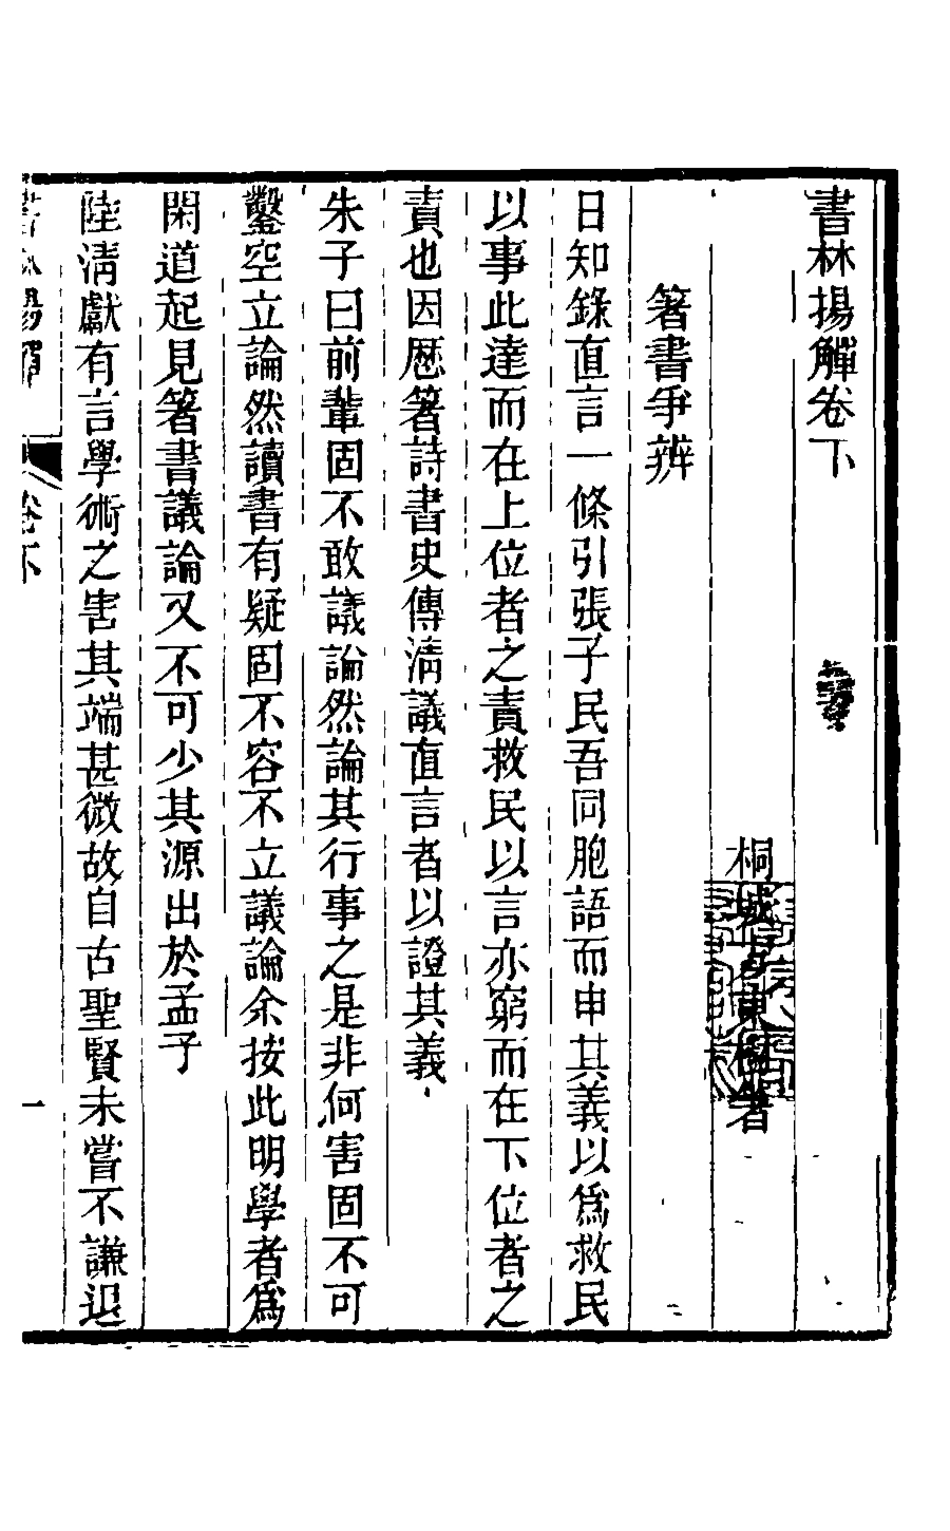 書林揚觶卷下
桐城方東樹著
箸書爭辨
日知錄直言一條引張子民吾同胞語而申其義以爲救民
以事此達而在上位者之責救民以言亦窮而在下位者之
責也因歷箸詩書史傳淸議直言者以證其義
朱子曰前輩固不敢議論然論其行事之是非何害固不可
鑿空立論然讀書有疑固不容不立議論余按此明學者爲
閑道起見箸書議論又不可少其源出於孟子
陸淸獻有言學術之害其端甚微故自古聖賢未嘗不謙退
書林揚觶
卷下
一